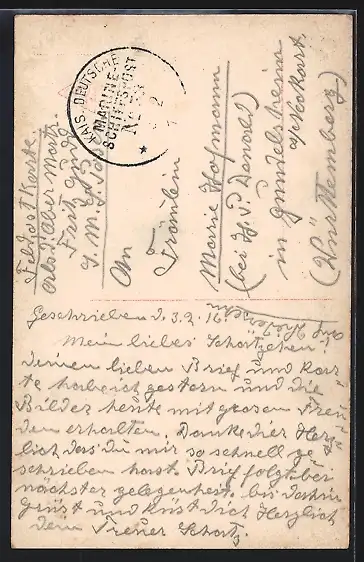 KAIS. DEUTSCHE
MARINE-
SCHIFFSPOST
Feldpostkarte
Abs. d.
Fritz
S. M. S.
An
Fräulein
Marie Hofmann
(bei H. P.
in Gundelsheim
a/Neckar.
(Württemberg)
Geschrieben d. 3.2.16
Mein liebes Schatzchen!
deinen lieben Brief und Kar-
te habe ich gestern und die
Bilder heute mit grosen Freu
den erhalten. Danke dier Herz-
lich das du mir so schnell ge-
schrieben hast. Brief folgt bei
nächster gelegenheit. bis dahin
grüst und küst dich Herzlich
dein Treuer Schatz.